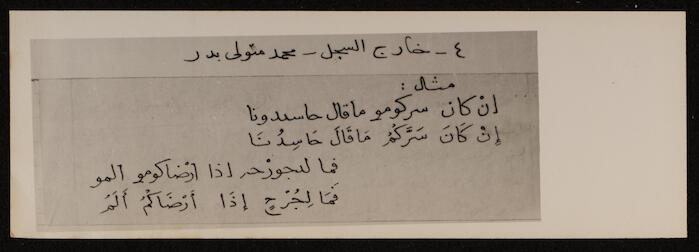 ٤ - خارج السجل - محمد متولى بدر
مثال :
انْ كان سركومو ماقال حاسدونا
إِنْ كَانَ سَرَّكُمُ مَا قَالَ حَاسِدُنَا
فما لجورحن اذا ارْضاكومو المو
فَمَا لِجُرْحٍ إِذَا أَرْضَاكُمُ أَلَمُ